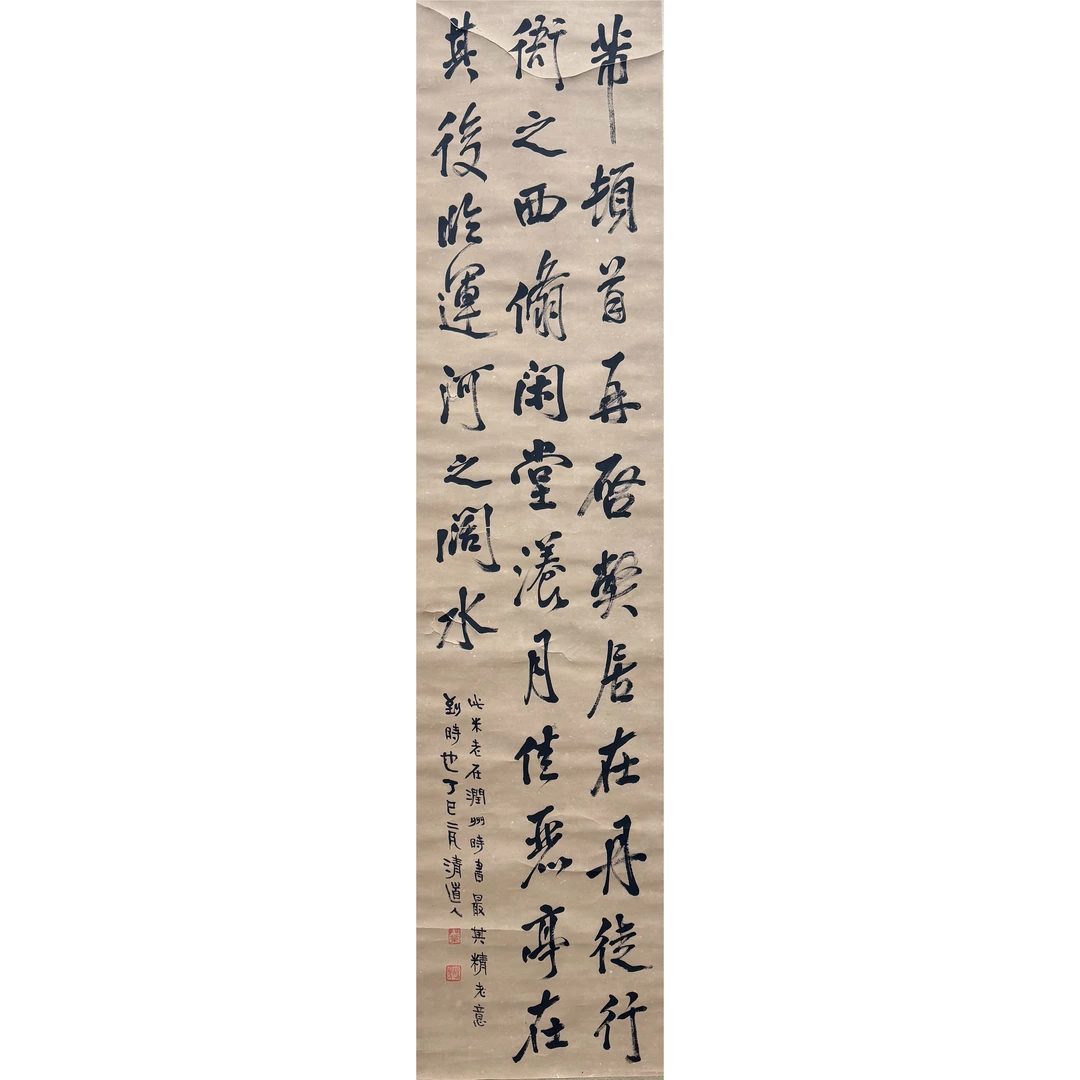 芾頓首再啓弊居在丹徒行
衙之西翛閑堂漾月佳麗亭在
其後臨運河之闊水
此米老在潤州時書最其精老意
到時也丁巳二月清道人